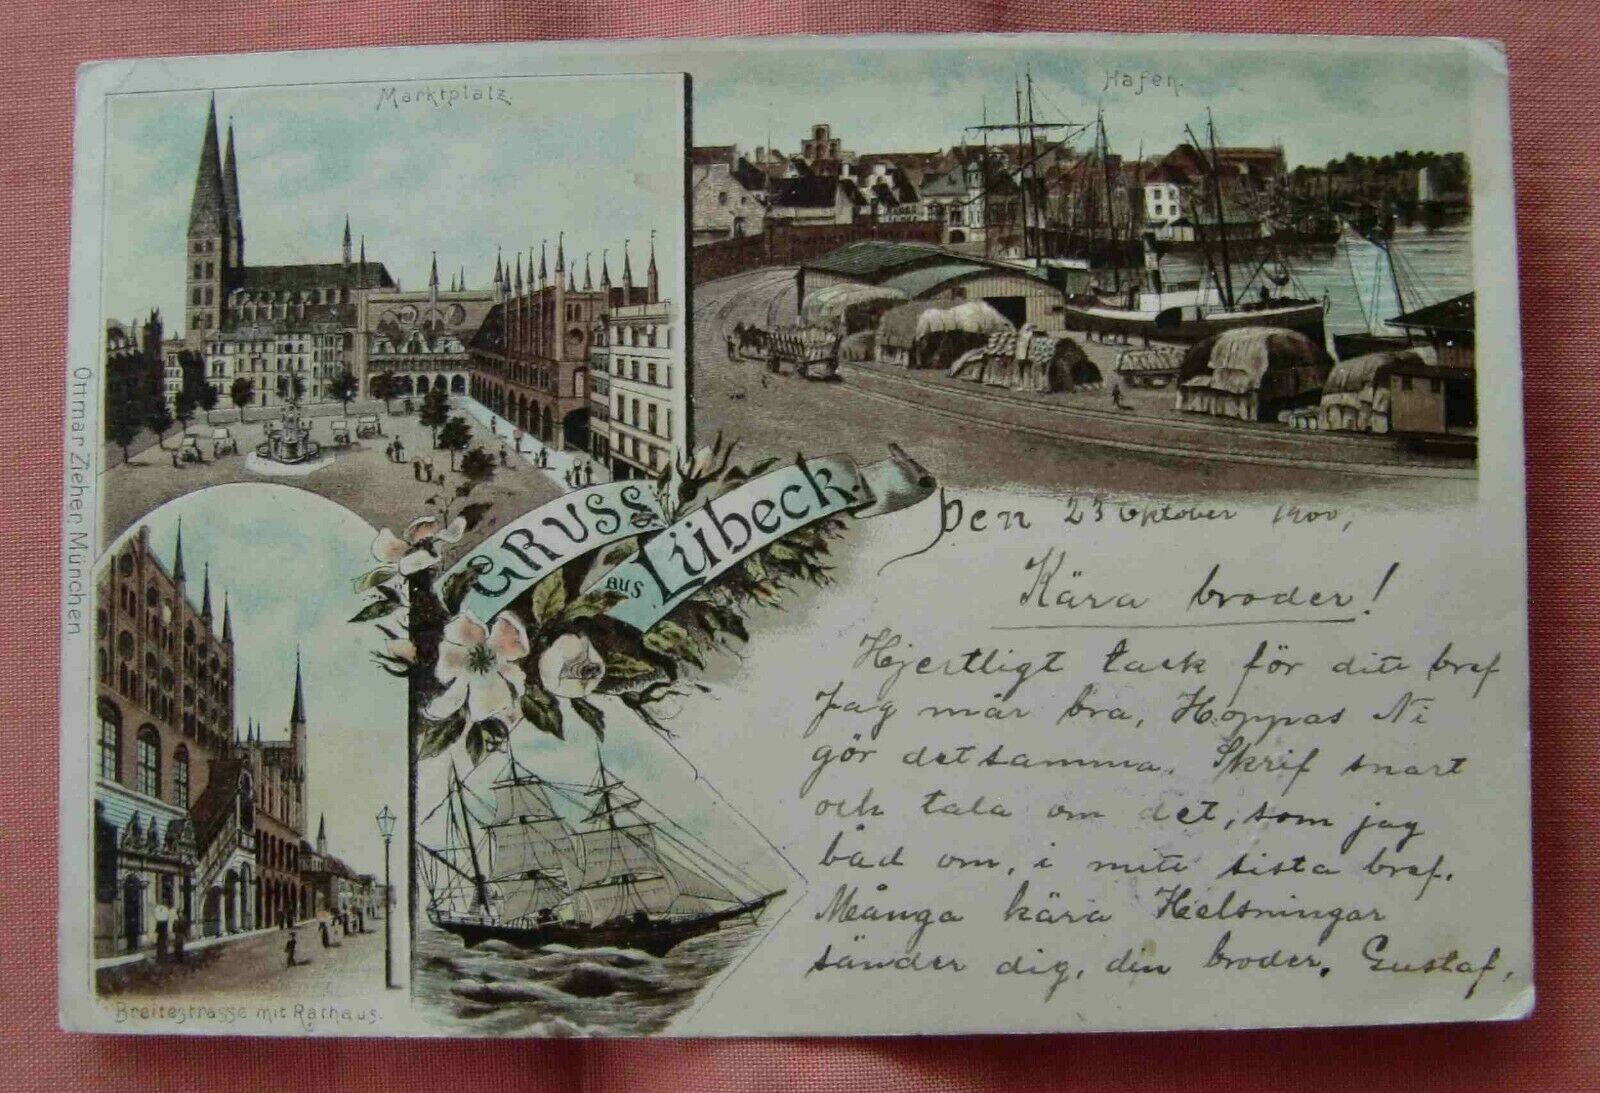 Marktplatz
Hafen.
Ottmar Zieher, München
GRUSS
aus Lübeck.
Breitestrasse mit Rathaus.
Den 23 Oktober 1900,
Kära broder!
Hjertligt tack för ditt bref
Jag mår bra, Hoppas Ni
gör detsamma. Skrif snart
och tala om det, som jag
bad om, i mitt sista bref.
Många kära Helsningar
sänder dig, din broder. Gustaf,